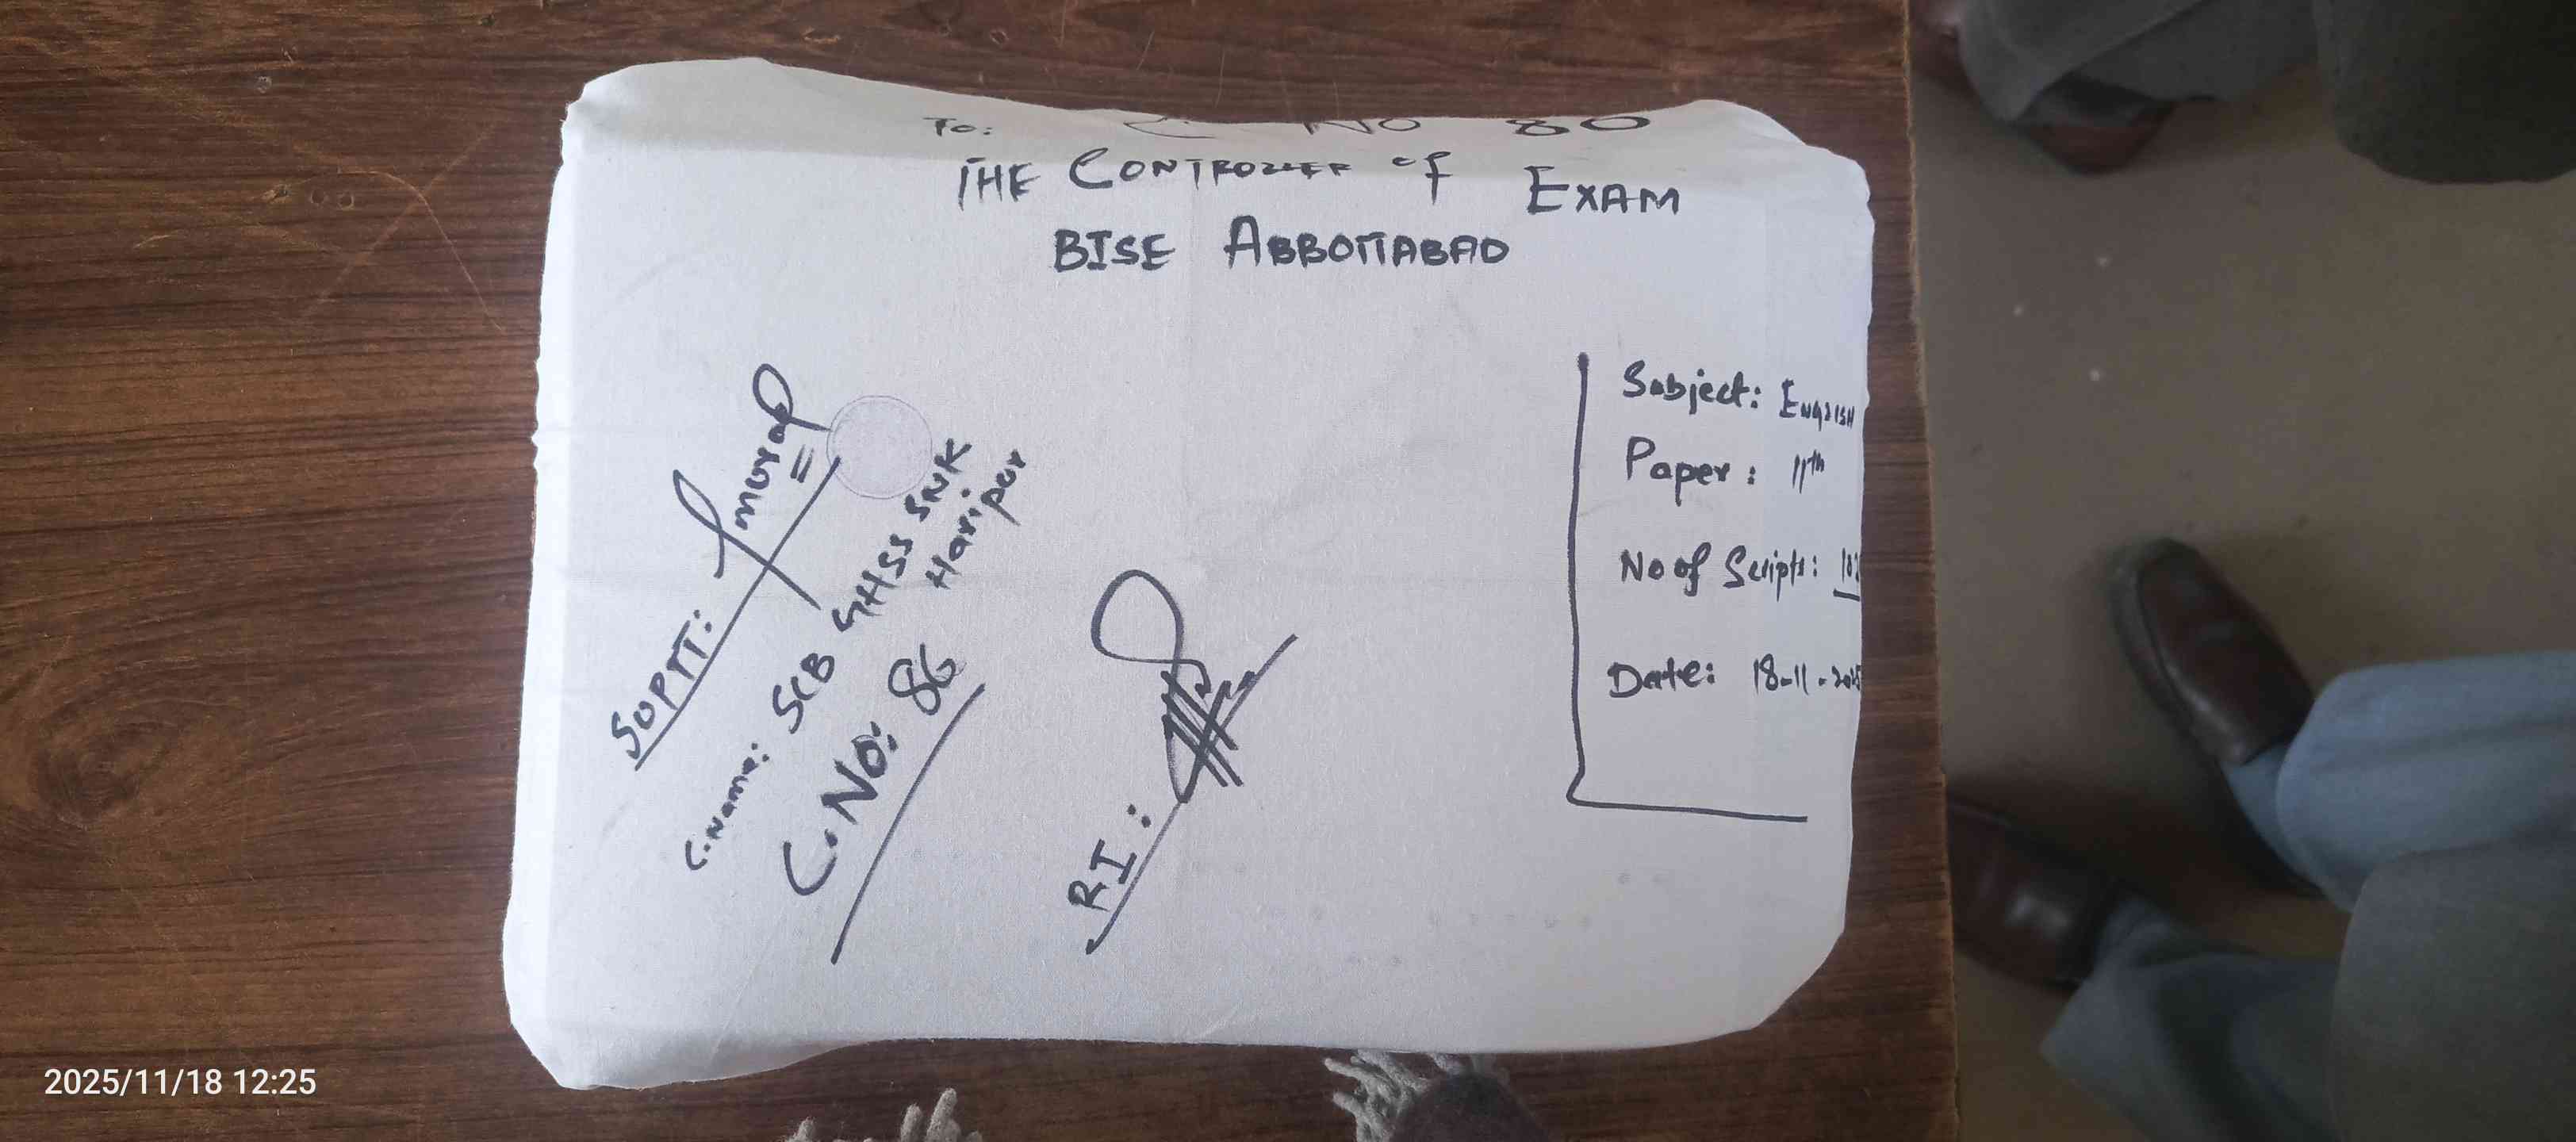 To: C No 86
THE CONTROLLER OF EXAM
BISE ABBOTTABAD
Subject: ENGLISH
Paper: 11th
No of Scripts:
Date: 18-11-2025
SUPTT:
C.Name: SCB GHSS SNK
Haripur
C.No: 86
RI:
2025/11/18 12:25